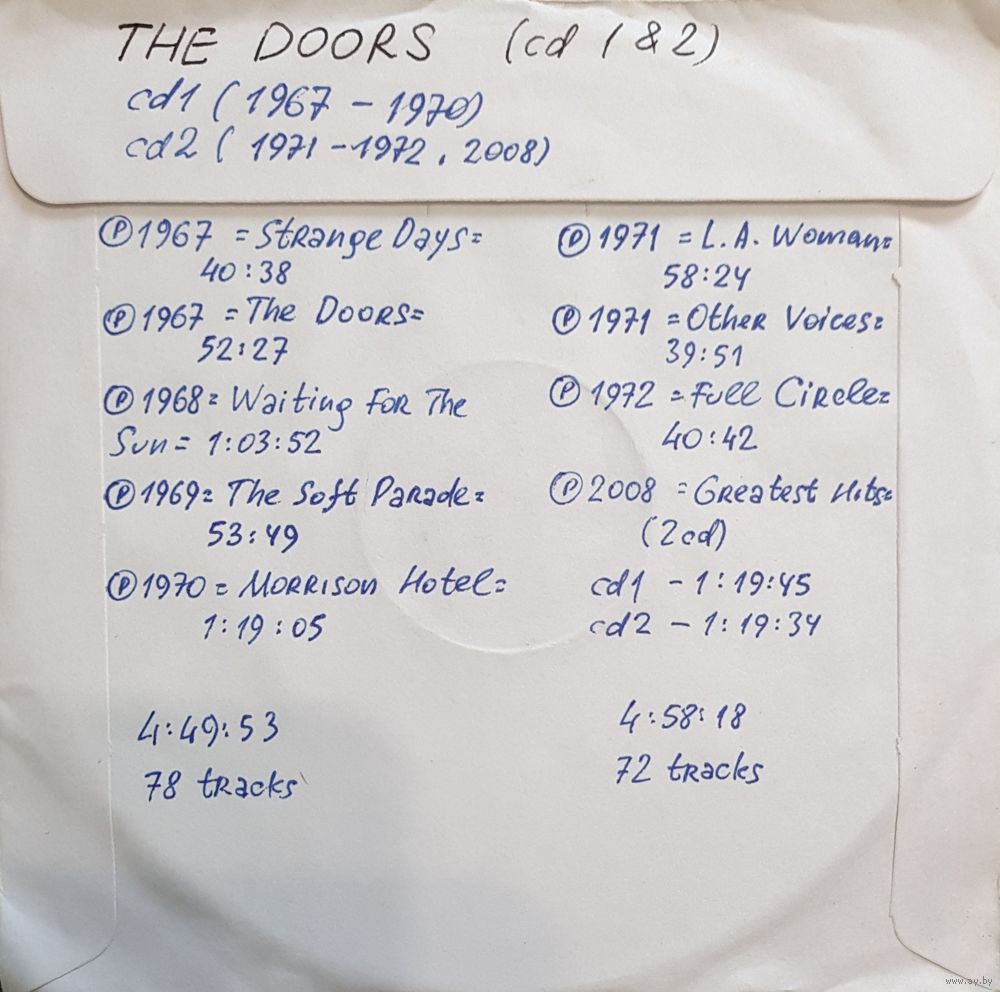 THE DOORS (cd 1 & 2)
cd1 (1967 - 1970)
cd2 (1971 - 1972, 2008)
Ⓟ 1967 = Strange Days=
40:38
Ⓟ 1967 = The Doors=
52:27
Ⓟ 1968= Waiting For The
Sun= 1:03:52
Ⓟ 1969= The Soft Parade=
53:49
Ⓟ 1970 = Morrison Hotel=
1:19:05
4:49:53
78 tracks
Ⓟ 1971 = L.A. Woman=
58:24
Ⓟ 1971 = Other Voices=
39:51
Ⓟ 1972 = Full Circle=
40:42
Ⓟ 2008 = Greatest Hits=
(2cd)
cd1 - 1:19:45
cd2 - 1:19:34
4:58:18
72 tracks
www.ay.by